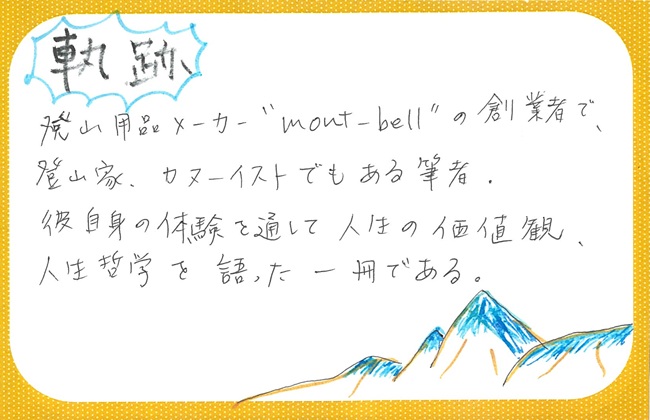 軌跡
登山用品メーカー"mont-bell"の創業者で、
登山家、カヌーイストでもある筆者。
彼自身の体験を通して人生の価値観、
人生哲学を語った一冊である。